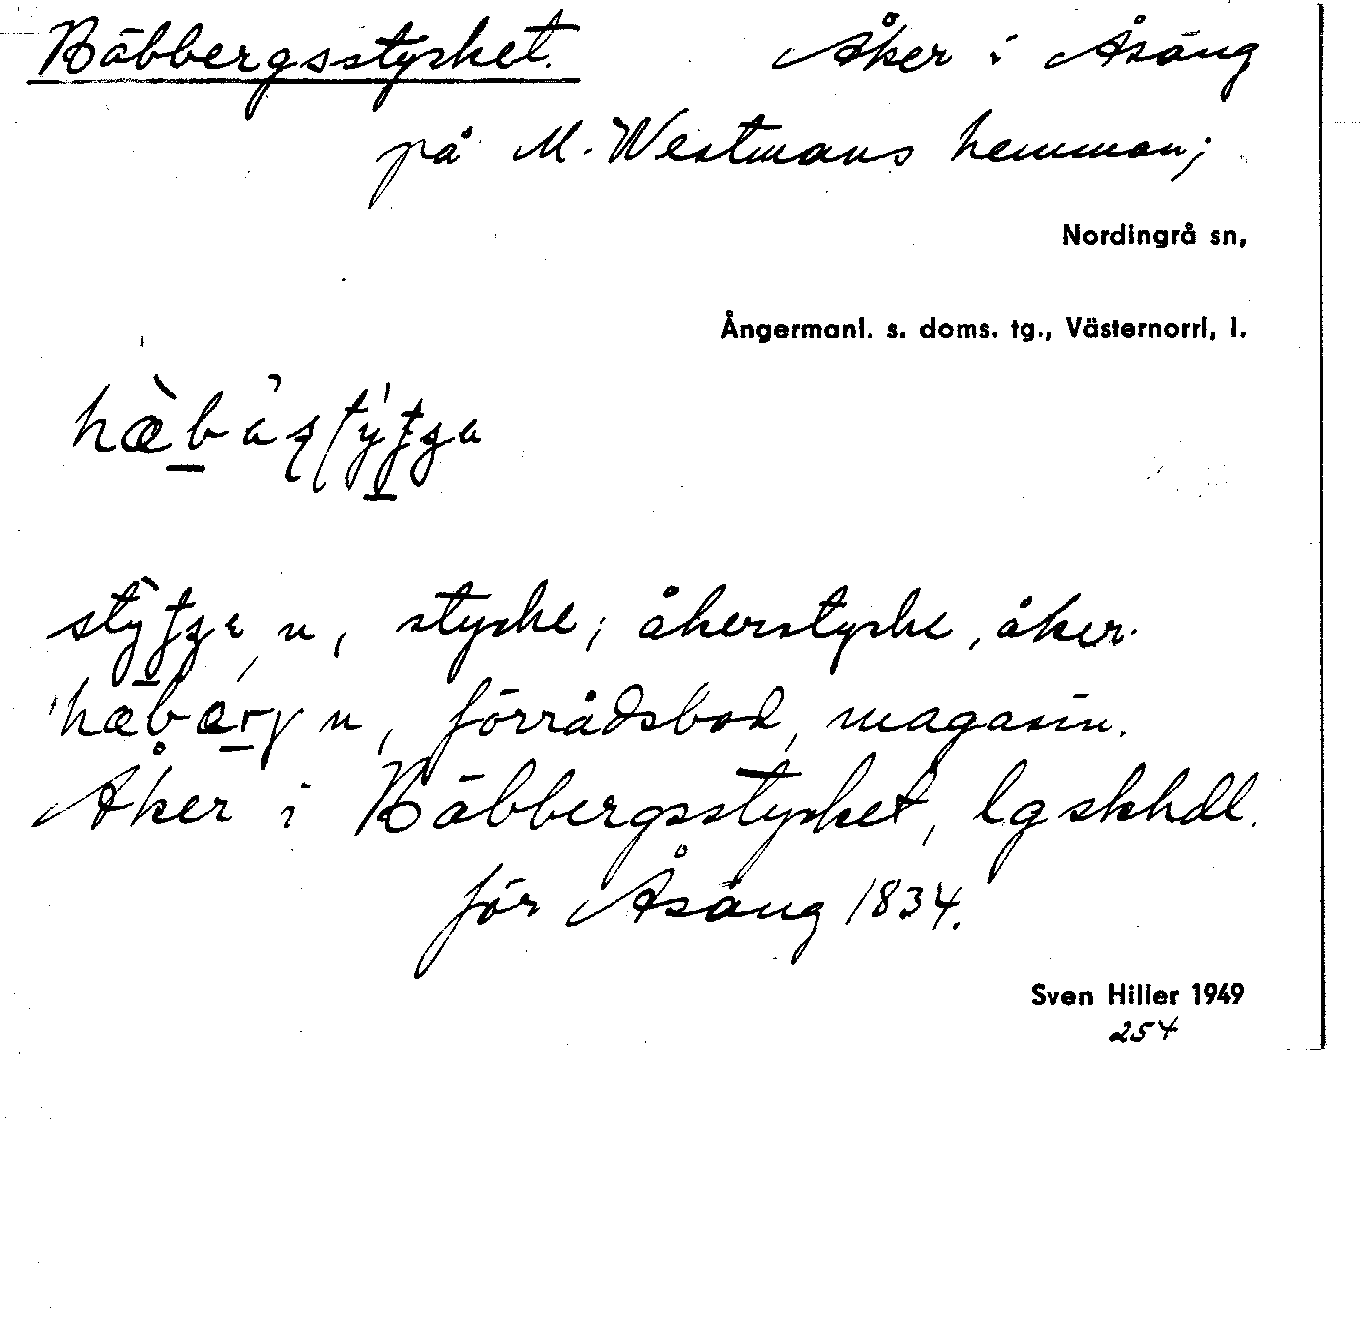 Häbbergsstycket. Åker i Åsäng
på M. Westmans hemman;
Nordingrå sn,
Ångermanl. s. doms. tg., Västernorrl, l.
n, stycke; åkerstycke, åker.
n, förrådsbod, magasin.
Åker i Häbbergsstycket, lgskhdl.
för Åsäng 1834.
Sven Hiller 1949
254